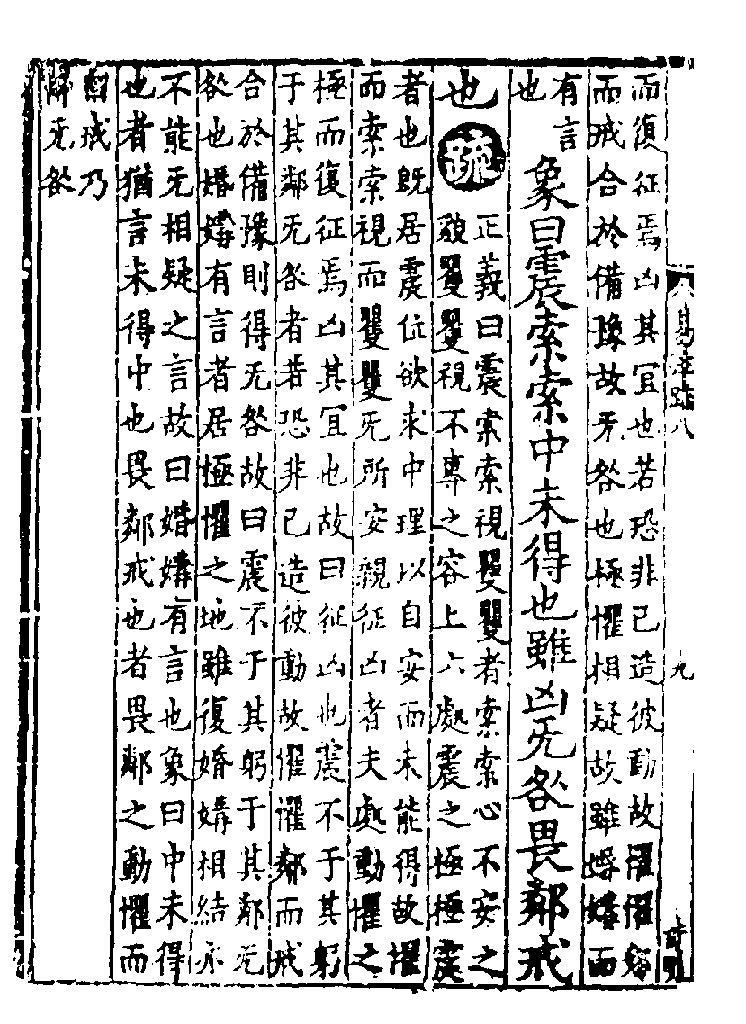 易注疏八
九
而復征焉凶其宜也若恐非己造彼動故懼懼鄰
而戒合於備豫故无咎也極懼相疑故雖婚媾而
有言
也
象曰震索索中未得也雖凶无咎畏鄰戒
也疏
正義曰震索索視矍矍者索索心不安之
貌矍矍視不專之容上六處震之極極震
者也既居震位欲求中理以自安而未能得故懼
而索索視而矍矍无所安親征凶者夫處動懼之
極而復征焉凶其宜也故曰征凶也震不于其躬
于其鄰无咎者若恐非己造彼動故懼懼鄰而戒
合於備豫則得无咎故曰震不于其躬于其鄰无
咎也婚媾有言者居極懼之地雖復婚媾相結亦
不能无相疑之言故曰婚媾有言也象曰中未得
也者猶言未得中也畏鄰戒也者畏鄰之動懼而
自戒乃
得无咎